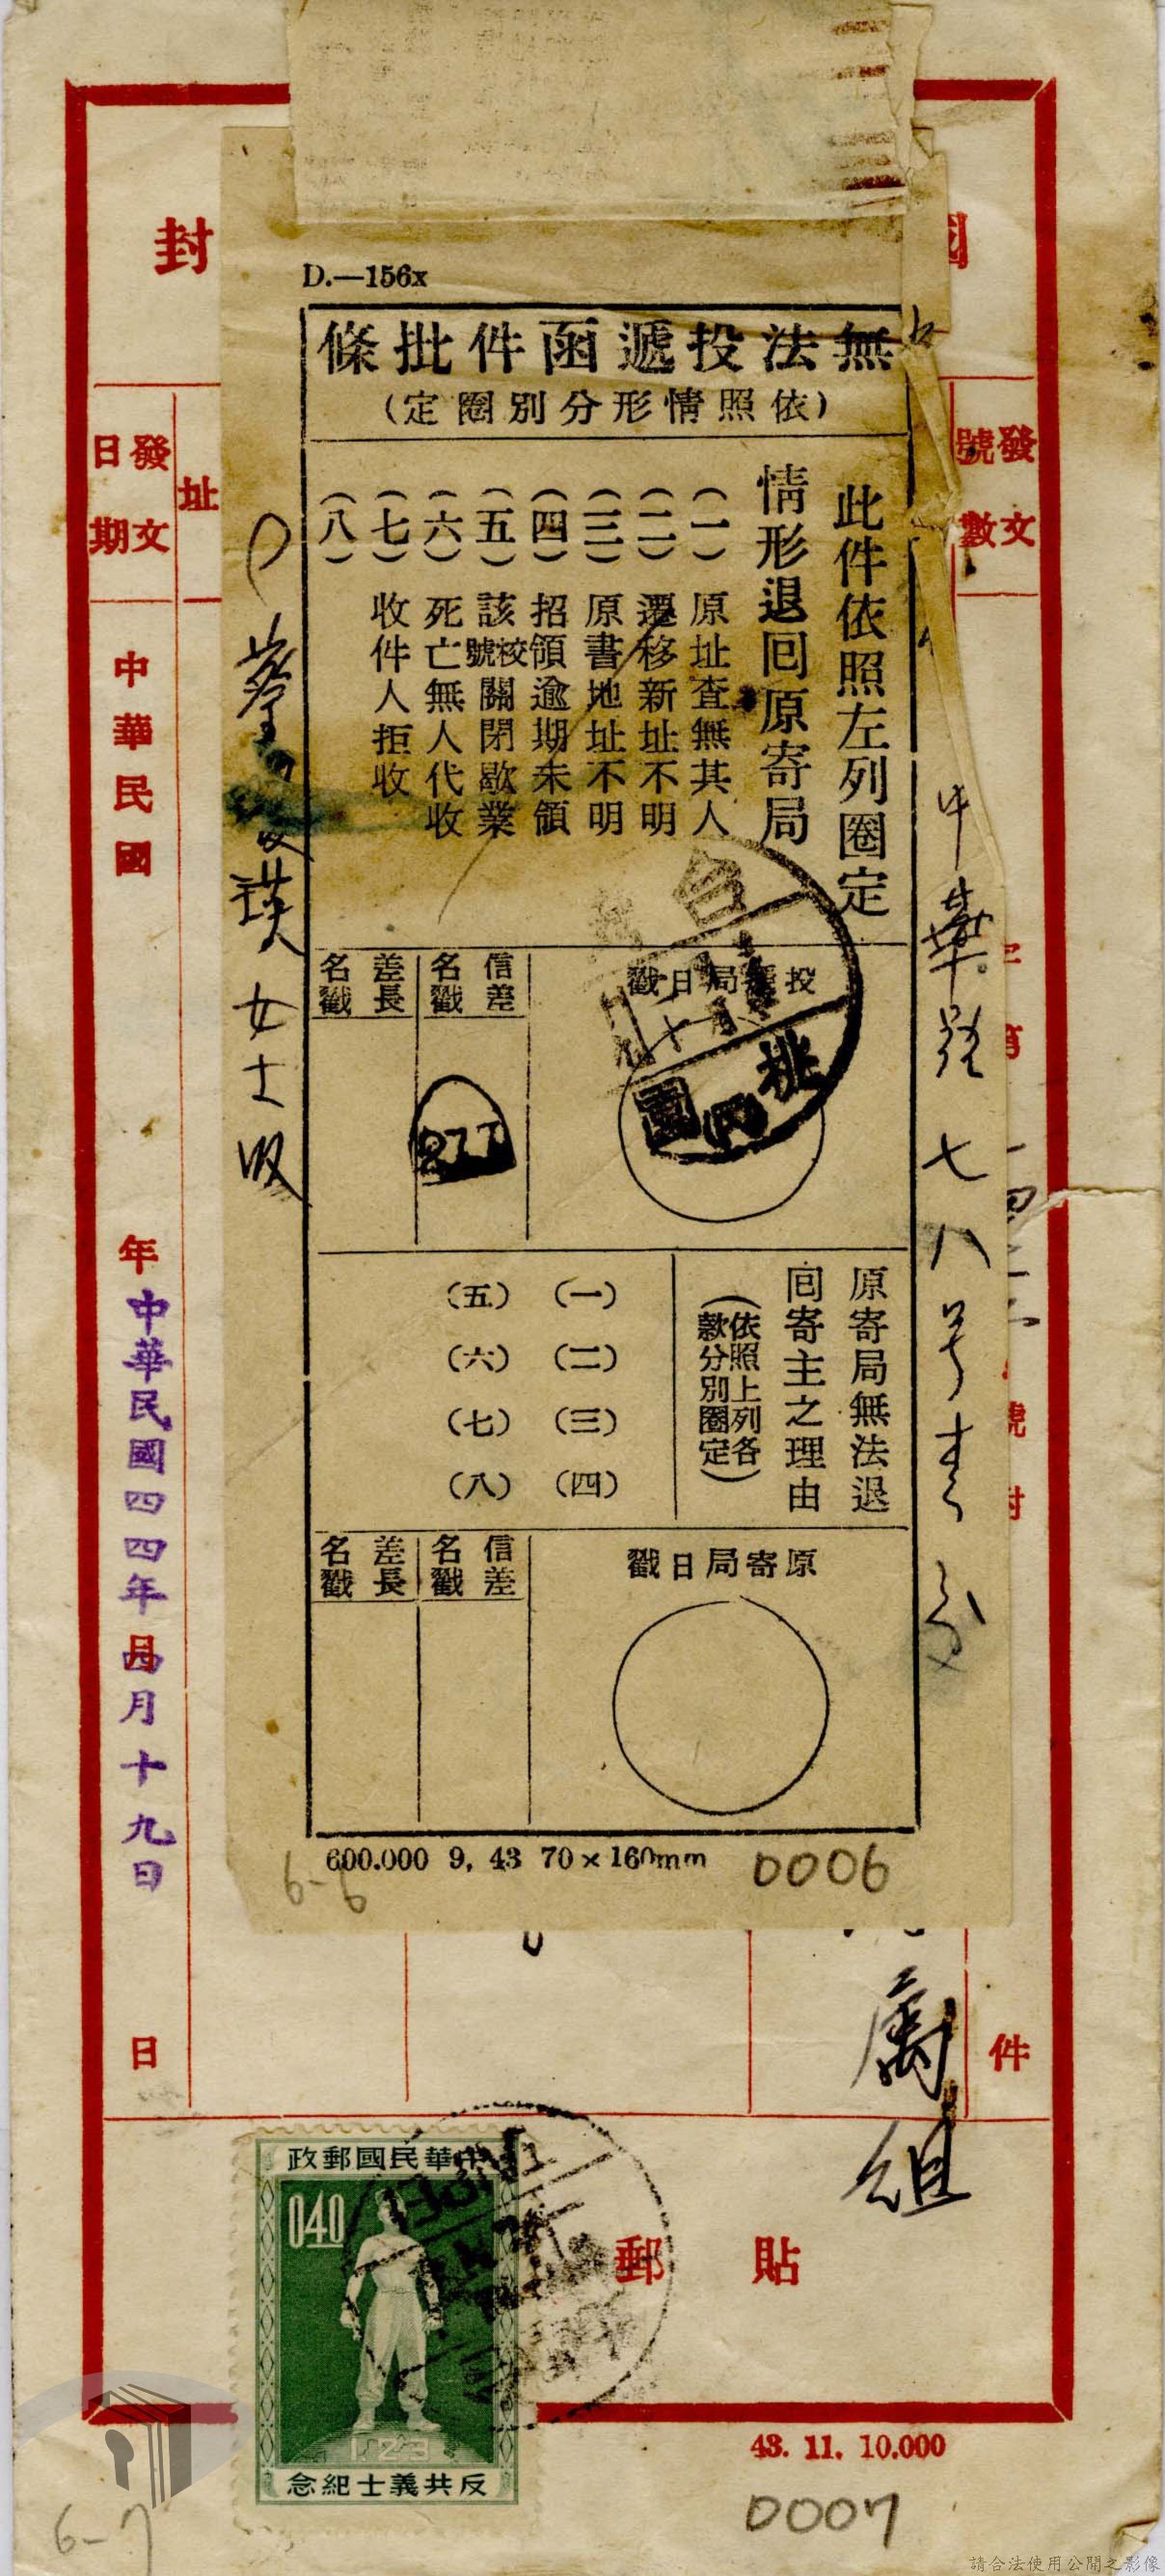 國
封
D.—156x
無法投遞函件批條
(依照情形分別圈定)
此件依照左列圈定
情形退囘原寄局
(一) 原址查無其人
(二) 遷移新址不明
(三) 原書地址不明
(四) 招領逾期未領
(五) 該校號關閉歇業
(六) 死亡無人代收
(七) 收件人拒收
(八)
投遞局日戳
信差名戳
差長名戳
桃園
277
原寄局無法退
囘寄主之理由
(依照上列各
款分別圈定)
(一) (二) (三) (四)
(五) (六) (七) (八)
原寄局日戳
信差名戳
差長名戳
600.000 9, 43 70×160mm
0006
6-6
發文號數
中華
七八号
女士收
址
發文日期
中華民國
年
中華民國四四年四月十九日
日
第
號
件
組
貼郵
中華民國郵政
040
123
反共義士紀念
43. 11. 10.000
0007
6-7
請合法使用公開之影像